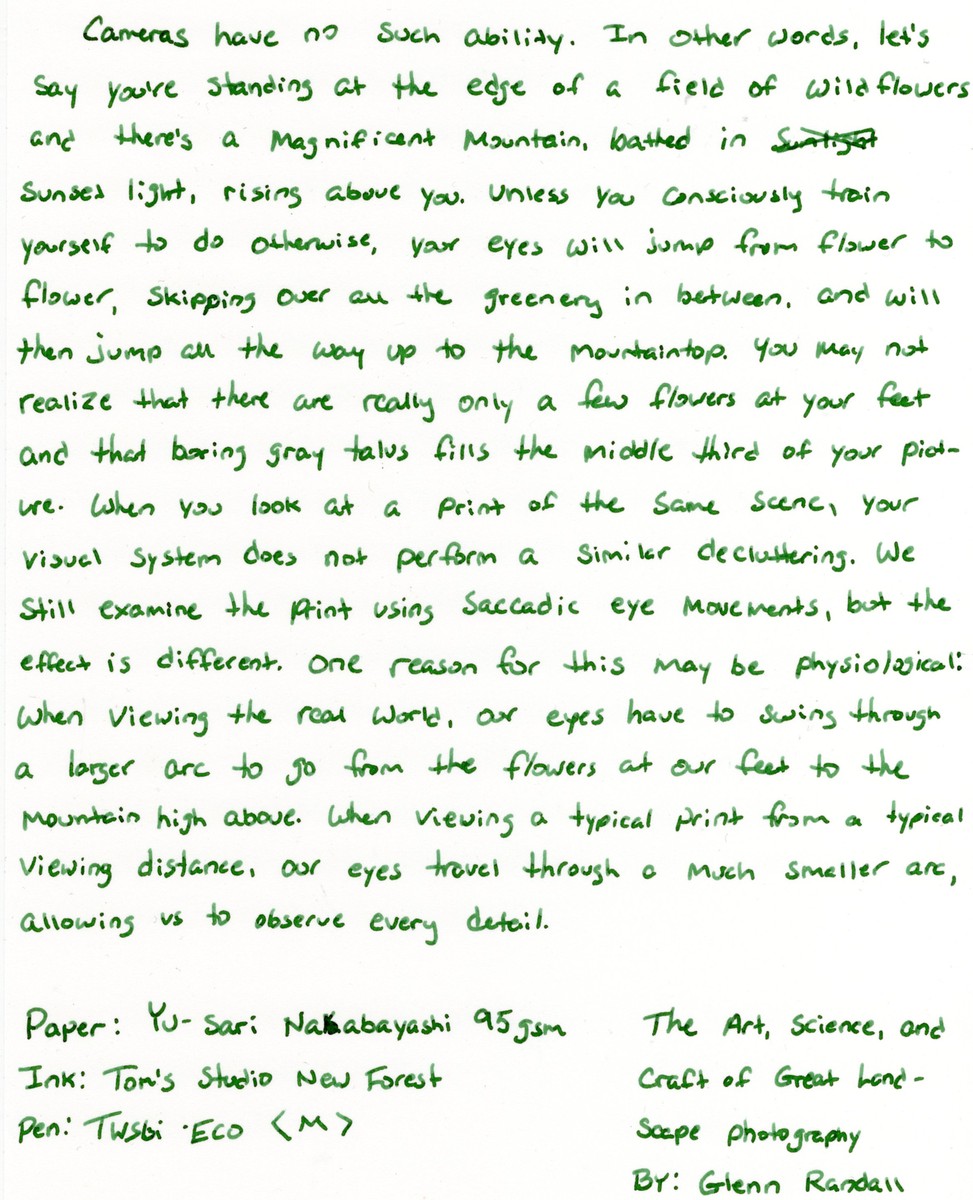 Cameras have no such ability. In other words, let's
say you're standing at the edge of a field of wildflowers
and there's a magnificent mountain, bathed in Sunlight
sunset light, rising above you. Unless you consciously train
yourself to do otherwise, your eyes will jump from flower to
flower, skipping over all the greenery in between, and will
then jump all the way up to the mountaintop. You may not
realize that there are really only a few flowers at your feet
and that boring gray talus fills the middle third of your pict-
ure. When you look at a print of the same scene, your
visual system does not perform a similar decluttering. We
still examine the print using saccadic eye movements, but the
effect is different. One reason for this may be physiological:
When viewing the real world, our eyes have to swing through
a larger arc to go from the flowers at our feet to the
mountain high above. When viewing a typical print from a typical
viewing distance, our eyes travel through a much smaller arc,
allowing us to observe every detail.
Paper: Yu-Sari Nakabayashi 95gsm
Ink: Tom's Studio New Forest
Pen: TWSBI ·Eco <M>
The Art, Science, and
Craft of Great Land-
scape photography
BY: Glenn Randall